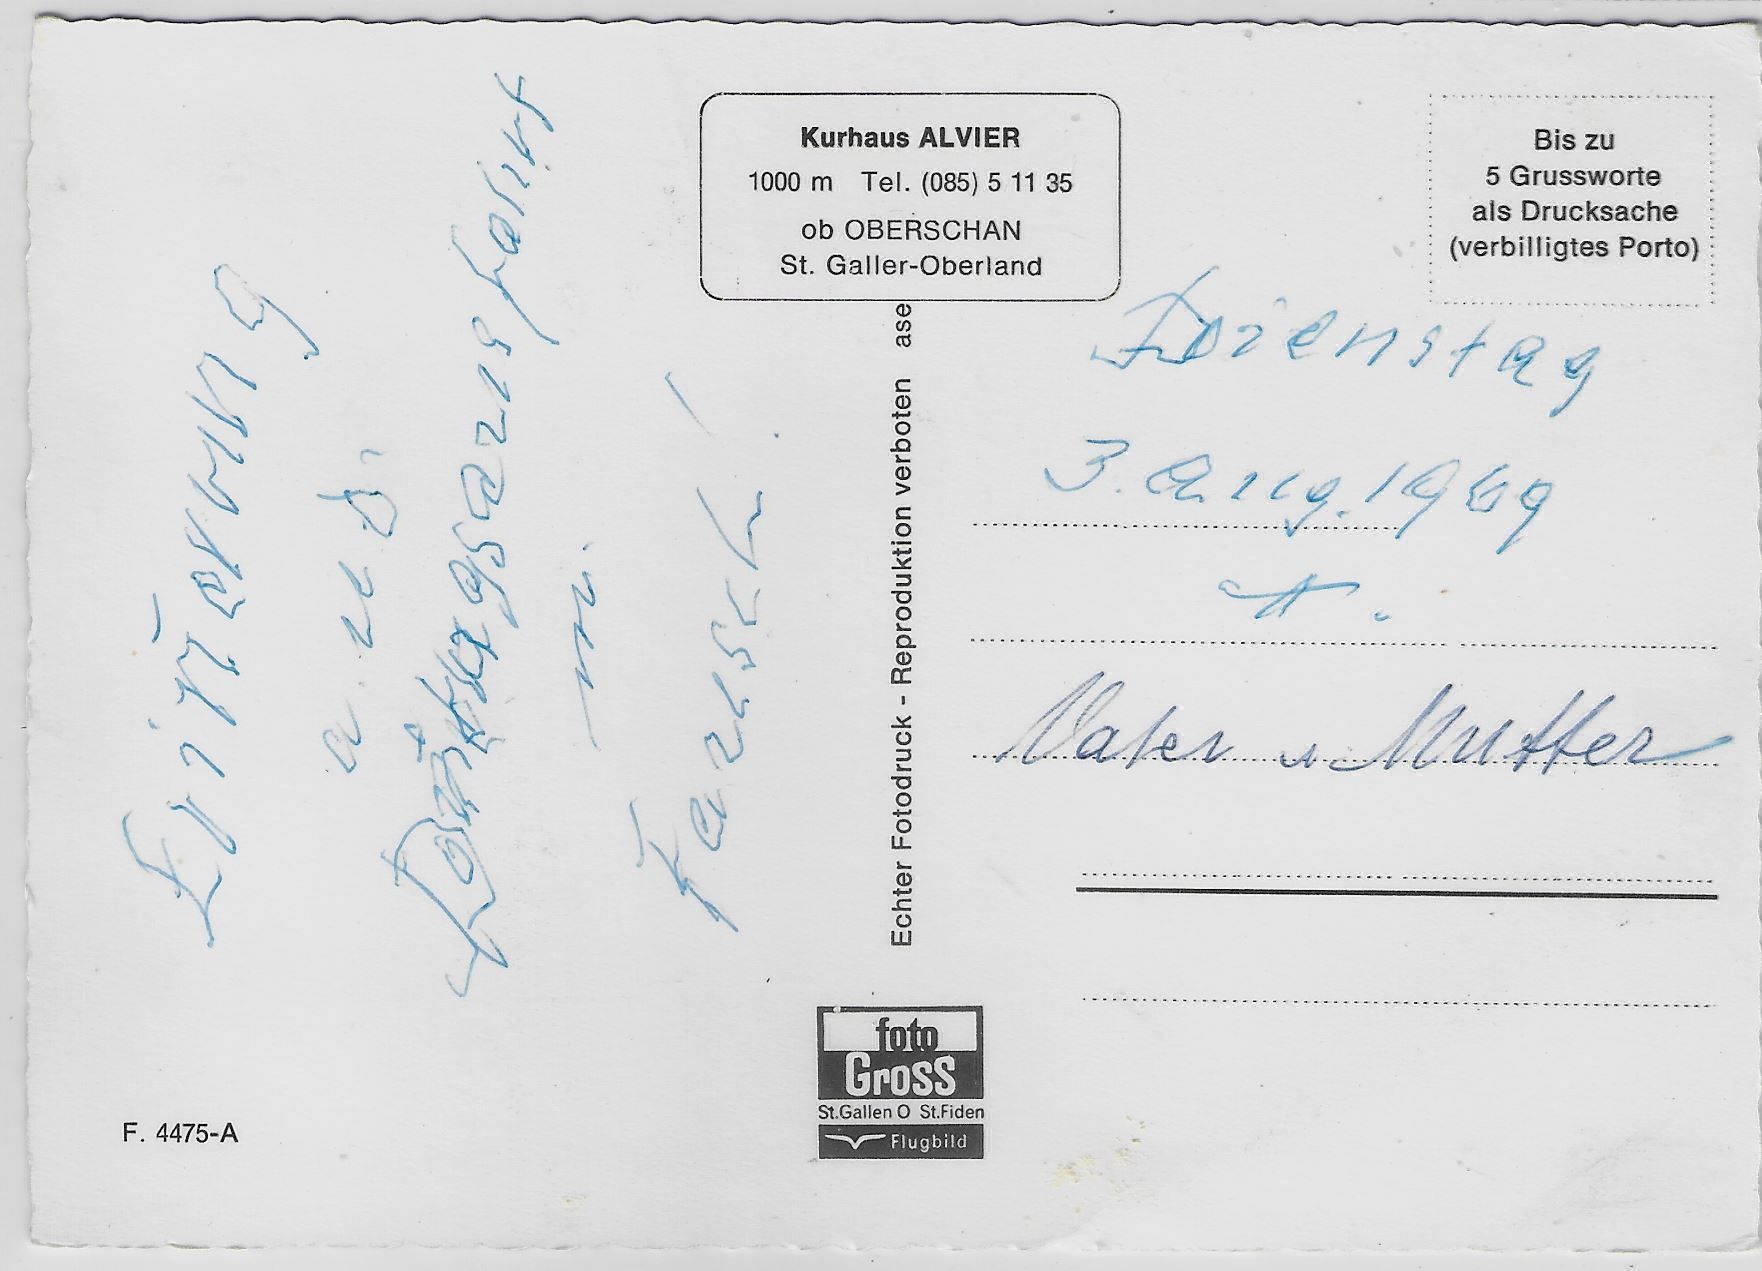 Kurhaus ALVIER
1000 m Tel. (085) 5 11 35
ob OBERSCHAN
St. Galler-Oberland
Bis zu
5 Grussworte
als Drucksache
(verbilligtes Porto)
Erinnerung
a. d.
m.
Dienstag
3. Aug. 1969
Vater u Mutter
Echter Fotodruck - Reproduktion verboten ase
foto
Gross
St.Gallen O St.Fiden
Flugbild
F. 4475-A